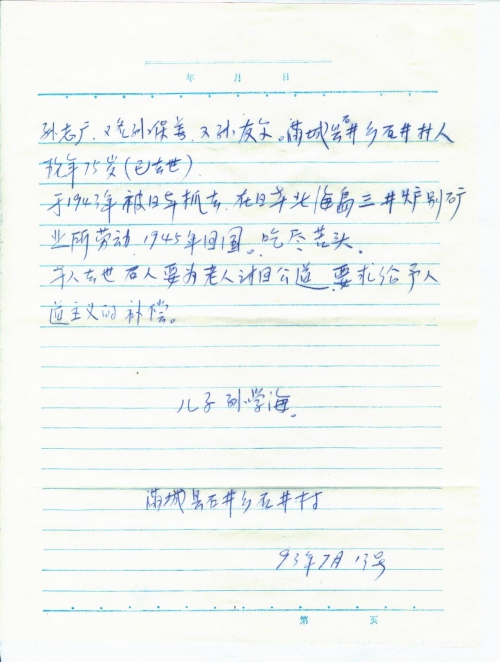 年 月 日
孙志广、又名孙保善、又孙友尔。蒲城县石井乡石井村人
现年75岁(已去世)
于1943年被日本抓去、在日本北海岛三井芦别矿
业所劳动、1945年回国。吃尽苦头、
本人去世 后人要为老人讨回公道 要求给予人
道主义的补偿。
儿子 孙学海。
蒲城县石井乡石井村
93年7月13号
第 页